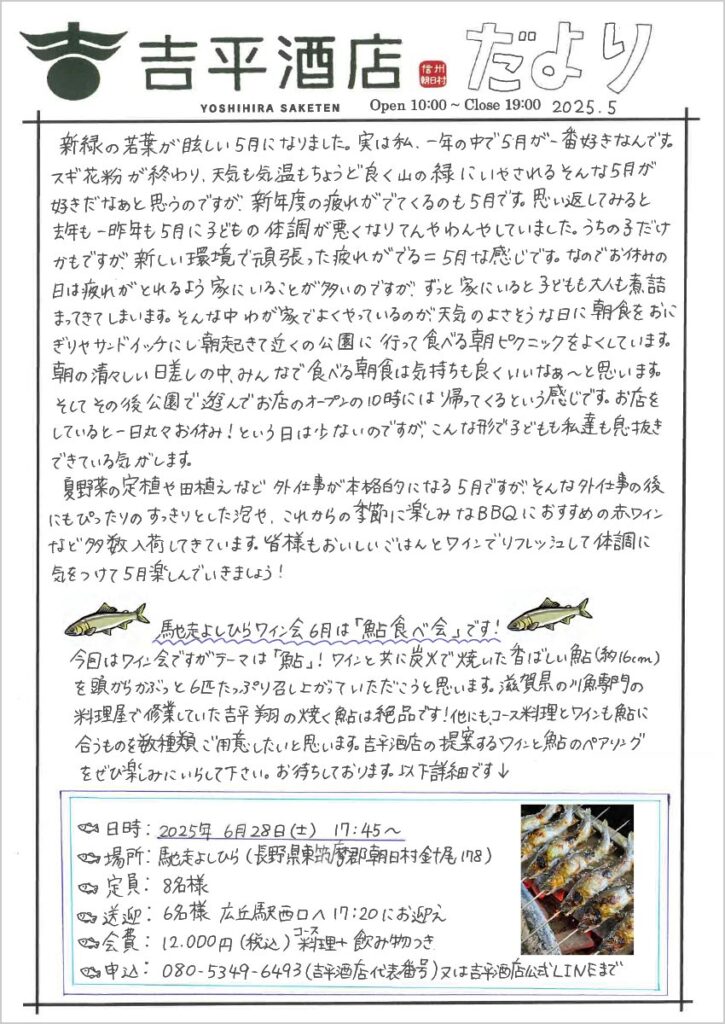 吉平酒店 信州朝日村 だより
YOSHIHIRA SAKETEN Open 10:00 ~ Close 19:00 2025.5
新緑の若葉が眩しい5月になりました。実は私、一年の中で5月が一番好きなんです。
スギ花粉が終わり、天気も気温もちょうど良く山の緑にいやされるそんな5月が
好きだなぁと思うのですが、新年度の疲れがでてくるのも5月です。思い返してみると
去年も一昨年も5月に子どもの体調が悪くなりてんやわんやしていました。うちの子だけ
かもですが、新しい環境で頑張った疲れがでる=5月な感じです。なのでお休みの
日は疲れがとれるよう家にいることが多いのですが、ずっと家にいると子どもも大人も煮詰
まってきてしまいます。そんな中わが家でよくやっているのが、天気のよさそうな日に朝食をおに
ぎりやサンドイッチにし朝起きて近くの公園に行って食べる朝ピクニックをよくしています。
朝の清々しい日差しの中、みんなで食べる朝食は気持ちも良くいいなぁ〜と思います。
そしてその後公園で遊んでお店のオープンの10時には帰ってくるという感じです。お店を
していると一日丸々お休み!という日は少ないのですが、こんな形で子どもも私達も息抜き
できている気がします。
夏野菜の定植や田植えなど外仕事が本格的になる5月ですが、そんな外仕事の後
にもぴったりのすっきりとした泡や、これからの季節に楽しみなBBQにおすすめの赤ワイン
など多数入荷してきています。皆様もおいしいごはんとワインでリフレッシュして体調に
気をつけて5月楽しんでいきましょう!
馳走よしひらワイン会6月は「鮎食べ会」です!
今回はワイン会ですがテーマは「鮎」!ワインと共に炭火で焼いた香ばしい鮎(約16cm)
を頭からかぶっと6匹たっぷり召し上がっていただこうと思います。滋賀県の川魚専門の
料理屋で修業していた吉平翔の焼く鮎は絶品です!他にも、コース料理とワインも鮎に
合うものを数種類ご用意したいと思います。吉平酒店の提案するワインと鮎のペアリング
をぜひ楽しみにいらして下さい。お待ちしております。以下詳細です↓
日時:2025年 6月28日(土) 17:45〜
場所:馳走よしひら(長野県東筑摩郡朝日村針尾178)
定員:8名様
送迎:6名様 広丘駅西口へ17:20にお迎え
会費:12.000円(税込) コース料理+飲み物つき
申込:080-5349-6493(吉平酒店代表番号)又は吉平酒店公式LINEまで